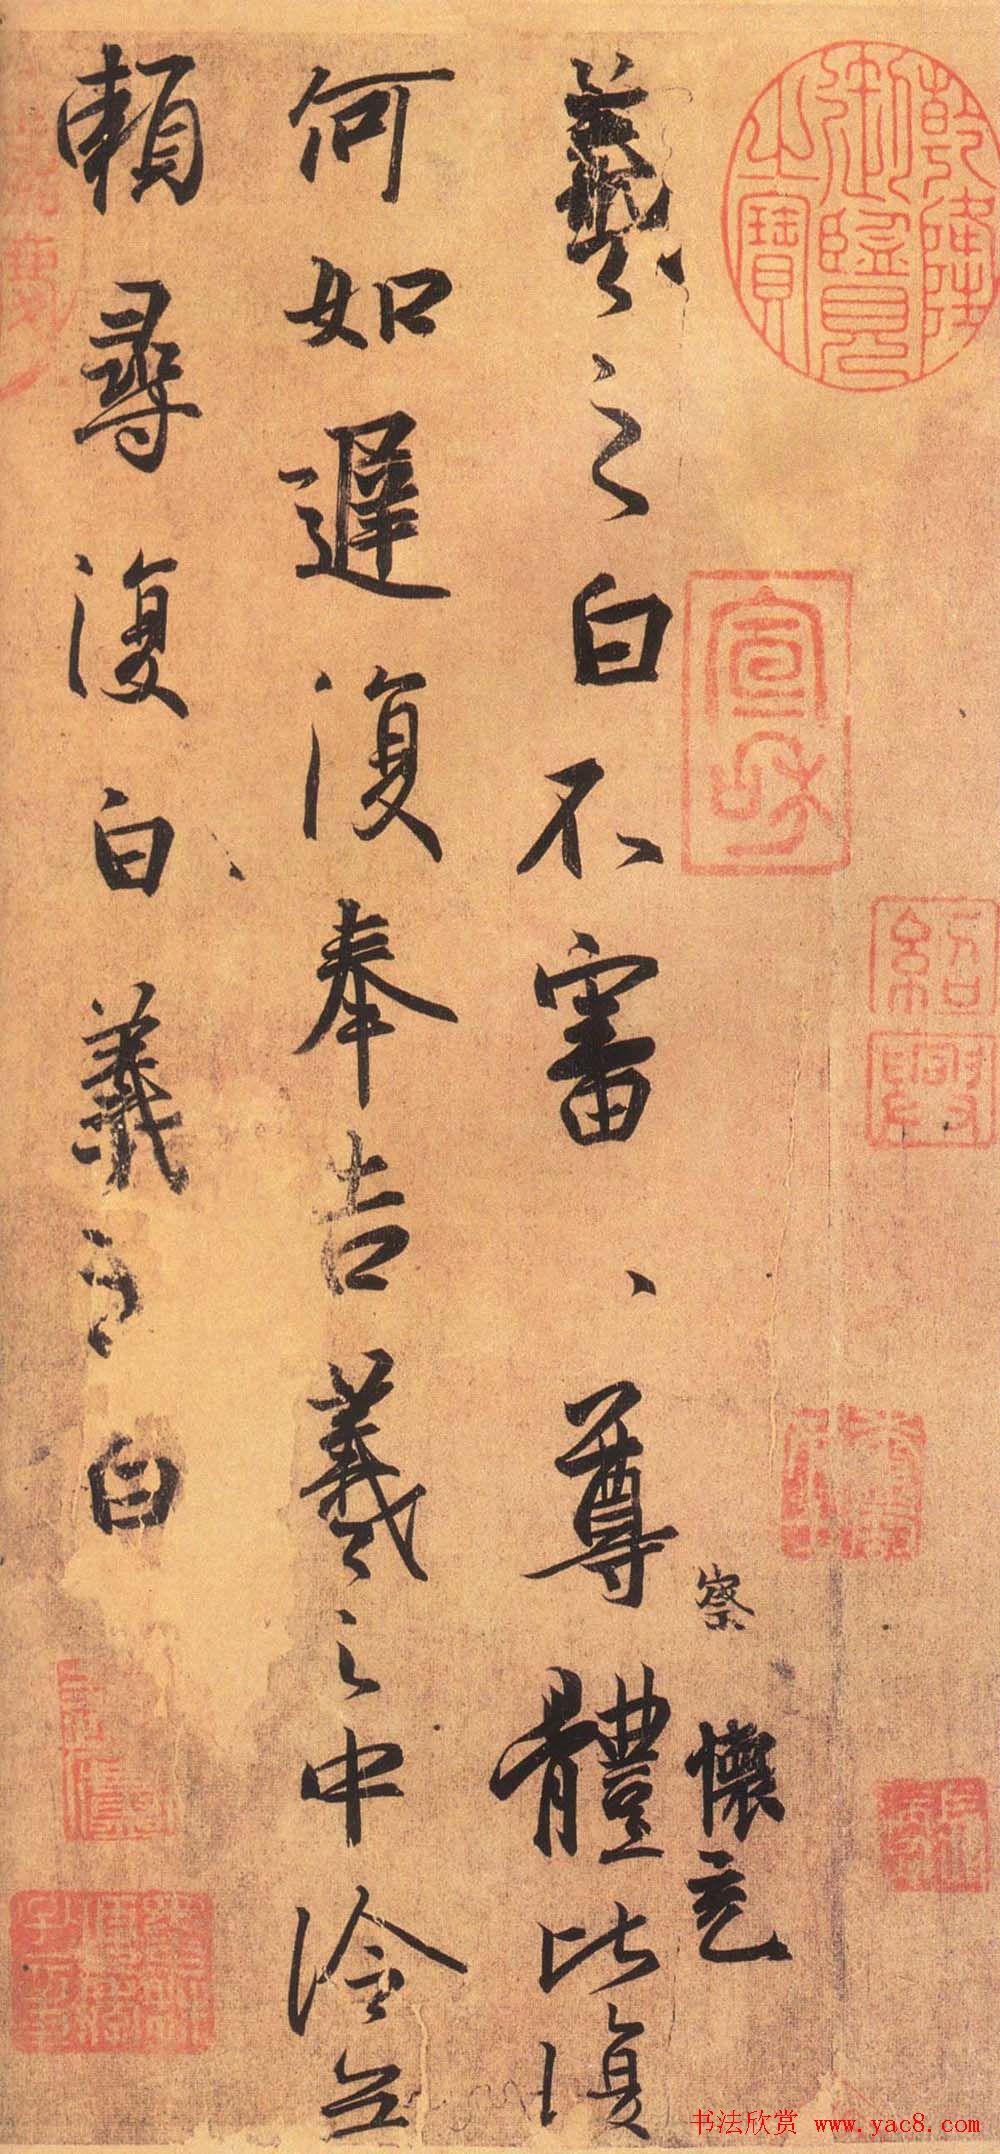 乾隆御覽之寶
宣和
紹興
察
懷充
羲之白不審、尊體比復
何如遲復奉告羲之中冷無
賴尋復白羲之白
书法欣赏 www.yac8.com